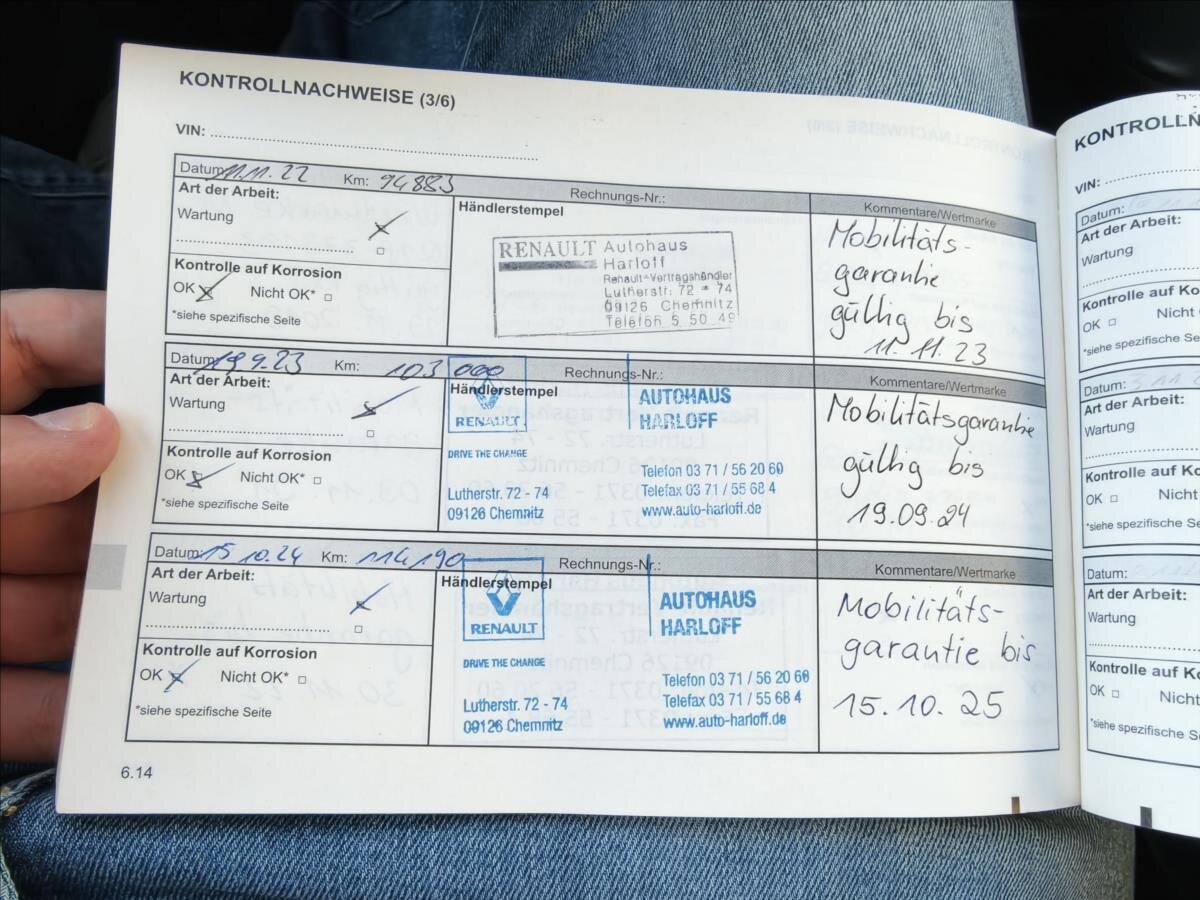 KONTROLLNACHWEISE (3/6)
VIN:
Datum 11.11.22 Km: 94883 Rechnungs-Nr.: Kommentare/Wertmarke
Art der Arbeit:
Wartung
Kontrolle auf Korrosion
OK Nicht OK*
*siehe spezifische Seite
Händlerstempel
RENAULT Autohaus
Harloff
Renault-Vertragshändler
Lutherstr. 72 - 74
09126 Chemnitz
Telefon 5 50 49
Mobilitäts-
garantie
gültig bis
11.11.23
Datum 19.9.23 Km: 103 000 Rechnungs-Nr.: Kommentare/Wertmarke
Art der Arbeit:
Wartung
Kontrolle auf Korrosion
OK Nicht OK*
*siehe spezifische Seite
Händlerstempel
RENAULT
DRIVE THE CHANGE
Lutherstr. 72 - 74
09126 Chemnitz
AUTOHAUS
HARLOFF
Telefon 03 71 / 56 20 60
Telefax 03 71 / 55 68 4
www.auto-harloff.de
Mobilitätsgarantie
gültig bis
19.09.24
Datum 15.10.24 Km: 114190 Rechnungs-Nr.: Kommentare/Wertmarke
Art der Arbeit:
Wartung
Kontrolle auf Korrosion
OK Nicht OK*
*siehe spezifische Seite
Händlerstempel
RENAULT
DRIVE THE CHANGE
Lutherstr. 72 - 74
09126 Chemnitz
AUTOHAUS
HARLOFF
Telefon 03 71 / 56 20 60
Telefax 03 71 / 55 68 4
www.auto-harloff.de
Mobilitäts-
garantie bis
15.10.25
6.14
VIN:
Datum:
Art der Arbeit:
Wartung
Kontrolle auf
OK
*siehe spezifische
Datum:
Art der Arbeit:
Wartung
Kontrolle auf
OK Nicht
*siehe spezifische
Datum:
Art der Arbeit:
Wartung
Kontrolle auf
OK
*siehe spezifische